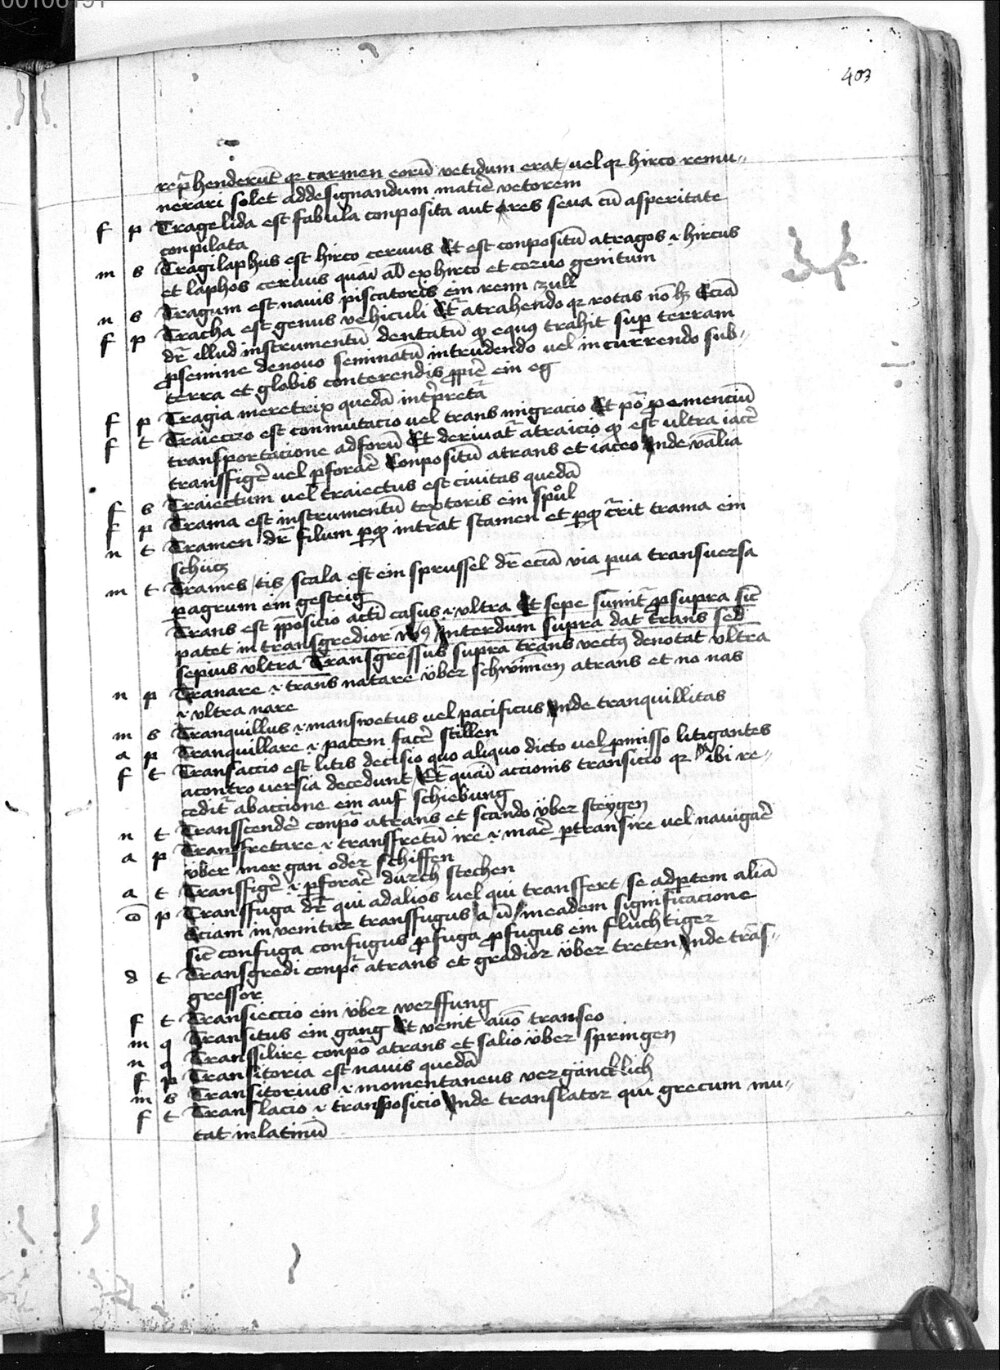 403
rep̄henderūt qr carmen eorū vetidum erat vel qr hirco remu-
nerari solet addesignandum matie vetorem
f p Tragelida est fabula conposita aut res seua cū asperitate
conpilata
m s Tragilaphus est hirco ceruus Et est conpositū atragos r hircus
et laphos ceruus quasi aĺ ex hirco et ceruo genitum
n s Tragum est nauis piscatoris ein renn zull
f p Tracha est genus vehiculi Et atrahendo qr rotas nō hȝ Eciā
dr̄ illud instrumentū dentatū qđ equus trahit sup terram
p̄semine denouo seminatū intrudendo vel incurrendo sub-
terra et globis conterendis ein eg
f p Tragia meretrix quedā intp̄retat̄
f t Traieccio est conmutacio vel trans migracio Et pō
transportacione adforū Et deriuat̄ atraicio qđ est ultra iacē
transfigē vel pforaē Conpositū atrans et iaceo Inde
f s Traiectum vel traiectus est ciuitas quedā
f p Trama est instrumentū textoris ein spul
n t Tramen dr̄ filum p qđ intrat stamen et p qđ trama ein
schütz
m t Trames tis scala est ein sprussel dr̄ eciā via pua transuersa
pagrum ein gesteig
Trans est p̄posicio acti casus r ultra Et sepe sumit̄ p supra sic̄
patet in transgredior Interdum supra dat trans sed
sepius ultra Transgressus supra trans vectus denotat ultra
n p Tranare r trans natare über schwimen atrans et no nas
r ultra nare
m s Tranquillus r mansuetus vel pacificus Inde tranquillitas
a p Tranquillare r pacem facē stillen
f t Transaccio est litis decisio quo aliquo dicto vel pmisso litigantes
acontro versia decedunt Et quasi accionis transicio qr ibi re-
cedit̄ abaccione ein auf schiebung
n t Transscendē conpō atrans et scando über steygen
a p Transfretare r transfretū ire r maē ptransire vel nauigaē
über mer gan oder schiffen
a t Transfigē r pforaē durch stechen
ō p Transffuga dr̄ qui adalios vel qui transfert se adptem aliā
Eciam inuenitur transfugus a ū meadem significacione
sic̄ confuga confugus pfuga pfugus ein fluchtiger
d t Transgredi conpō atrans et gradior über treten Inde trās-
gressor
f t Transieccio ein über werffung
m q Transitus ein gang Et venit aūo transeo
n q Transsilire conpō atrans et salio über springen
f p Transitoria est nauis quedā
m s Transitorius r momentaneus vergäncklich
f t Translacio r transposicio Inde translator qui grecum mu-
tat inlatinū